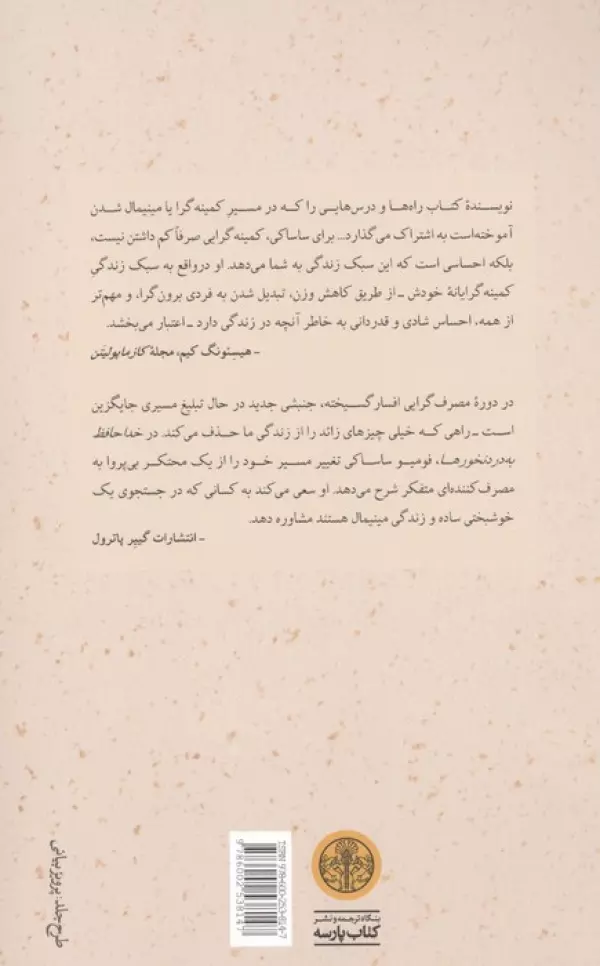 نویسندهٔ کتاب راه‌ها و درس‌هایی را که در مسیر کمینه‌گرا یا مینیمال شدن
آموخته‌است به اشتراک می‌گذارد... برای ساساکی، کمینه‌گرایی صرفاً کم داشتن نیست،
بلکه احساسی است که این سبک زندگی به شما می‌دهد. او درواقع به سبک زندگیِ
کمینه‌گرایانهٔ خودش ـ از طریق کاهش وزن، تبدیل شدن به فردی برون‌گرا، و مهم‌تر
از همه، احساس شادی و قدردانی به خاطر آنچه در زندگی دارد ـ اعتبار می‌بخشد.
- هیسِئونگ کیم، مجلهٔ کازماپولیتَن
در دورهٔ مصرف‌گرایی افسارگسیخته، جنبشی جدید در حال تبلیغ مسیری جایگزین
است ـ راهی که خیلی چیزهای زائد را از زندگی ما حذف می‌کند. در خداحافظ
به‌دردنخورها، فومیو ساساکی تغییر مسیر خود را از یک محتکر بی‌پروا به
مصرف‌کننده‌ای متفکر شرح می‌دهد. او سعی می‌کند به کسانی که در جستجوی یک
خوشبختی ساده و زندگی مینیمال هستند مشاوره دهد.
- انتشارات گیپر پاترول
طرح جلد: پرویز بیانی
ISBN 978-600-253-814-7
9786002538147
بنگاه ترجمه و نشر
کتاب پارسه